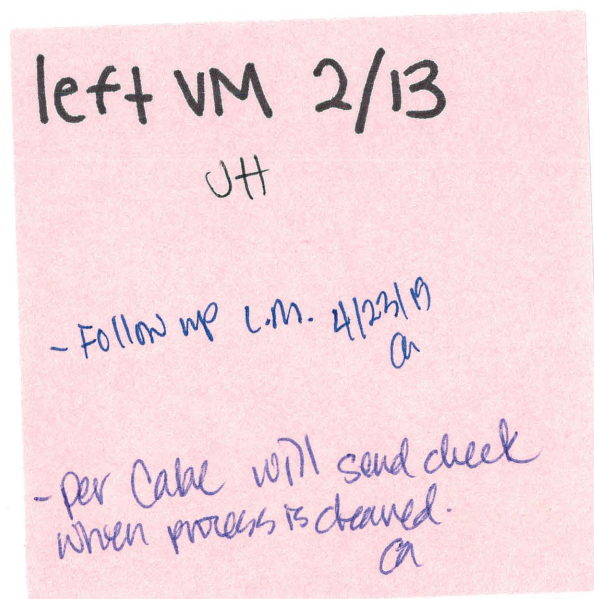 left VM 2/13
JH
- Follow up L.M. 4/23/19
ca
- per Cabe will send check
when process is cleared.
ca